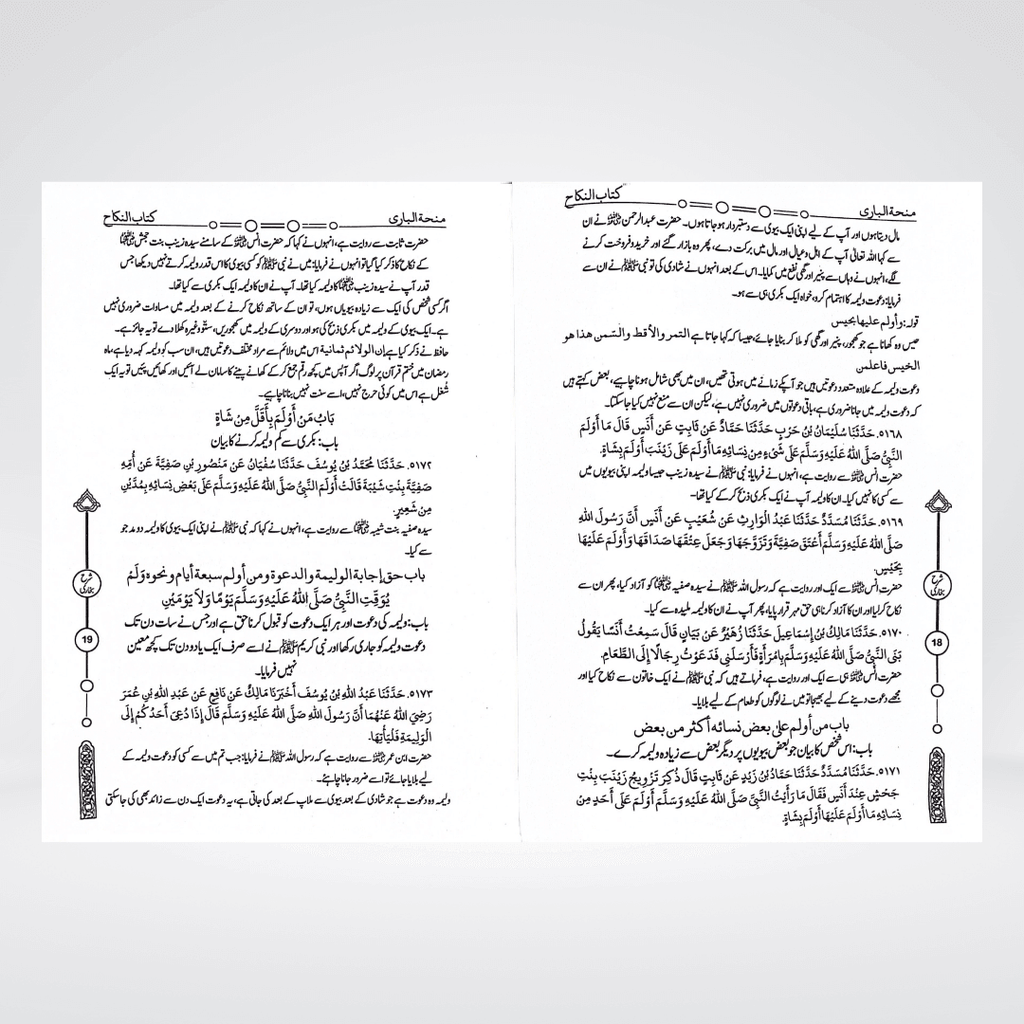 منحة الباری
کتاب النکاح
مال دیتا ہوں اور آپ کے لیے اپنی ایک بیوی سے دستبردار ہو جاتا ہوں۔ حضرت عبدالرحمن رضی اللہ عنہ نے ان
سے کہا اللہ تعالیٰ آپ کے اہل و عیال اور مال میں برکت دے، پھر وہ بازار گئے اور خرید و فروخت کرنے
لگے، انہوں نے وہاں سے پنیر اور گھی نفع میں کمایا۔ اس کے بعد انہوں نے شادی کی تو نبی ﷺ نے ان سے
فرمایا: دعوت ولیمہ کا اہتمام کرو، خواہ ایک بکری ہی سے ہو۔
قوله: وأولم عليها بحيس
حیس وہ کھانا ہے جو کھجور، پنیر اور گھی کو ملا کر بنایا جائے، جیسا کہ کہا جاتا ہے التمر والأقط والسّمن هذا هو
الحيس فاعلمن
دعوت ولیمہ کے علاوہ متعدد دعوتیں ہیں جو آپکے زمانے میں ہوتی تھیں، ان میں بھی شامل ہونا چاہیے، بعض کہتے ہیں
کہ دعوت ولیمہ میں جانا ضروری ہے، باقی دعوتوں میں ضروری نہیں ہے، لیکن ان سے منع نہیں کیا جا سکتا۔
۵۱۶۸. حَدَّثَنَا سُلَيْمَانُ بْنُ حَرْبٍ حَدَّثَنَا حَمَّادٌ عَنْ ثَابِتٍ عَنْ أَنَسٍ قَالَ مَا أَوْلَمَ
النَّبِيُّ صَلَّى اللهُ عَلَيْهِ وَسَلَّمَ عَلَى شَيْءٍ مِنْ نِسَائِهِ مَا أَوْلَمَ عَلَى زَيْنَبَ أَوْلَمَ بِشَاةٍ.
حضرت انس رضی اللہ عنہ سے روایت ہے، انہوں نے فرمایا: نبی ﷺ نے سیدہ زینب جیسا ولیمہ اپنی بیویوں میں
سے کسی کا نہیں کیا۔ ان کا ولیمہ آپ نے ایک بکری ذبح کر کے کیا تھا۔
۵۱۶۹. حَدَّثَنَا مُسَدَّدٌ حَدَّثَنَا عَبْدُ الْوَارِثِ عَنْ شُعَيْبٍ عَنْ أَنَسٍ أَنَّ رَسُولَ اللهِ
صَلَّى اللهُ عَلَيْهِ وَسَلَّمَ أَعْتَقَ صَفِيَّةَ وَتَزَوَّجَهَا وَجَعَلَ عِتْقَهَا صَدَاقَهَا وَأَوْلَمَ عَلَيْهَا
بِحَيْسٍ.
حضرت انس رضی اللہ عنہ سے ایک اور روایت ہے کہ رسول اللہ ﷺ نے سیدہ صفیہ رضی اللہ عنہا کو آزاد کیا، پھر ان سے
نکاح کر لیا اور ان کا آزاد کرنا ہی حق مہر قرار پایا، پھر آپ نے ان کا ولیمہ ملیدہ سے کیا۔
۵۱۷۰. حَدَّثَنَا مَالِكُ بْنُ إِسْمَاعِيلَ حَدَّثَنَا زُهَيْرٌ عَنْ بَيَانٍ قَالَ سَمِعْتُ أَنَسًا يَقُولُ
بَنَى النَّبِيُّ صَلَّى اللهُ عَلَيْهِ وَسَلَّمَ بِامْرَأَةٍ فَأَرْسَلَنِي فَدَعَوْتُ رِجَالًا إِلَى الطَّعَامِ.
حضرت انس رضی اللہ عنہ ہی سے ایک اور روایت ہے، فرماتے ہیں کہ نبی ﷺ نے ایک خاتون سے نکاح کیا اور
مجھے دعوت دینے کے لیے بھیجا تو میں نے لوگوں کو طعام کے لیے بلایا۔
باب من أولم على بعض نسائه أكثر من بعض
باب: اس شخص کا بیان جو بعض بیویوں پر دیگر بعض سے زیادہ ولیمہ کرے۔
۵۱۷۱. حَدَّثَنَا مُسَدَّدٌ حَدَّثَنَا حَمَّادُ بْنُ زَيْدٍ عَنْ ثَابِتٍ قَالَ ذُكِرَ تَزْوِيجُ زَيْنَبَ بِنْتِ
جَحْشٍ عِنْدَ أَنَسٍ فَقَالَ مَا رَأَيْتُ النَّبِيَّ صَلَّى اللهُ عَلَيْهِ وَسَلَّمَ أَوْلَمَ عَلَى أَحَدٍ مِنْ
نِسَائِهِ مَا أَوْلَمَ عَلَيْهَا أَوْلَمَ بِشَاةٍ.
شرح
بخاری
18
منحة الباری
کتاب النکاح
حضرت ثابت سے روایت ہے، انہوں نے کہا کہ حضرت انس رضی اللہ عنہ کے سامنے سیدہ زینب بنت جحش رضی اللہ عنہا
کے نکاح کا ذکر کیا گیا تو انہوں نے فرمایا: میں نے نبی ﷺ کو کسی بیوی کا اس قدر ولیمہ کرتے نہیں دیکھا جس
قدر آپ نے سیدہ زینب رضی اللہ عنہا کا ولیمہ کیا تھا۔ آپ نے ان کا ولیمہ ایک بکری سے کیا تھا۔
اگر کسی شخص کی ایک سے زیادہ بیویاں ہوں، تو ان کے ساتھ نکاح کرنے کے بعد ولیمہ میں مساوات ضروری نہیں
ہے۔ ایک بیوی کے ولیمہ میں بکری ذبح کی ہو اور دوسری کے ولیمہ میں کھجوریں، ستو وغیرہ کھلا دے تو یہ جائز ہے۔
حافظ نے ذکر کیا ہے إن الولائم ثمانية اس میں ولائم سے مراد مختلف دعوتیں ہیں، ان سب کو ولیمہ کہہ دیا ہے، ماہ
رمضان میں ختم قرآن پر لوگ اگر آپس میں کچھ رقم جمع کر کے کھانے پینے کا سامان لے آئیں اور کھائیں پئیں تو یہ ایک
شغل ہے اس میں کوئی حرج نہیں، اسے سنت نہیں بنانا چاہیے۔
بَابُ مَنْ أَوْلَمَ بِأَقَلَّ مِنْ شَاةٍ
باب: بکری سے کم ولیمہ کرنے کا بیان
۵۱۷۲. حَدَّثَنَا مُحَمَّدُ بْنُ يُوسُفَ حَدَّثَنَا سُفْيَانُ عَنْ مَنْصُورِ بْنِ صَفِيَّةَ عَنْ أُمِّهِ
صَفِيَّةَ بِنْتِ شَيْبَةَ قَالَتْ أَوْلَمَ النَّبِيُّ صَلَّى اللهُ عَلَيْهِ وَسَلَّمَ عَلَى بَعْضِ نِسَائِهِ بِمُدَّيْنِ
مِنْ شَعِيرٍ.
سیدہ صفیہ بنت شیبہ رضی اللہ عنہا سے روایت ہے، انہوں نے کہا کہ نبی ﷺ نے اپنی ایک بیوی کا ولیمہ دو مد جو
سے کیا۔
باب حق إجابة الوليمة والدعوة ومن أولم سبعة أيام ونحوه وَلَمْ
يُوَقِّتِ النَّبِيُّ صَلَّى اللهُ عَلَيْهِ وَسَلَّمَ يَوْمًا وَلَا يَوْمَيْنِ
باب: ولیمہ کی دعوت اور ہر ایک دعوت کو قبول کرنا حق ہے اور جس نے سات دن تک
دعوت ولیمہ کو جاری رکھا اور نبی کریم ﷺ نے اسے صرف ایک یا دو دن تک کچھ معین
نہیں فرمایا۔
۵۱۷۳. حَدَّثَنَا عَبْدُ اللهِ بْنُ يُوسُفَ أَخْبَرَنَا مَالِكٌ عَنْ نَافِعٍ عَنْ عَبْدِ اللهِ بْنِ عُمَرَ
رَضِيَ اللهُ عَنْهُمَا أَنَّ رَسُولَ اللهِ صَلَّى اللهُ عَلَيْهِ وَسَلَّمَ قَالَ إِذَا دُعِيَ أَحَدُكُمْ إِلَى
الْوَلِيمَةِ فَلْيَأْتِهَا.
حضرت ابن عمر رضی اللہ عنہ سے روایت ہے کہ رسول اللہ ﷺ نے فرمایا: جب تم میں سے کسی کو دعوت ولیمہ کے
لیے بلایا جائے تو اسے ضرور جانا چاہئے۔
ولیمہ وہ دعوت ہے جو شادی کے بعد بیوی سے ملاپ کے بعد کی جاتی ہے، یہ دعوت ایک دن سے زائد بھی کی جا سکتی
شرح
بخاری
19